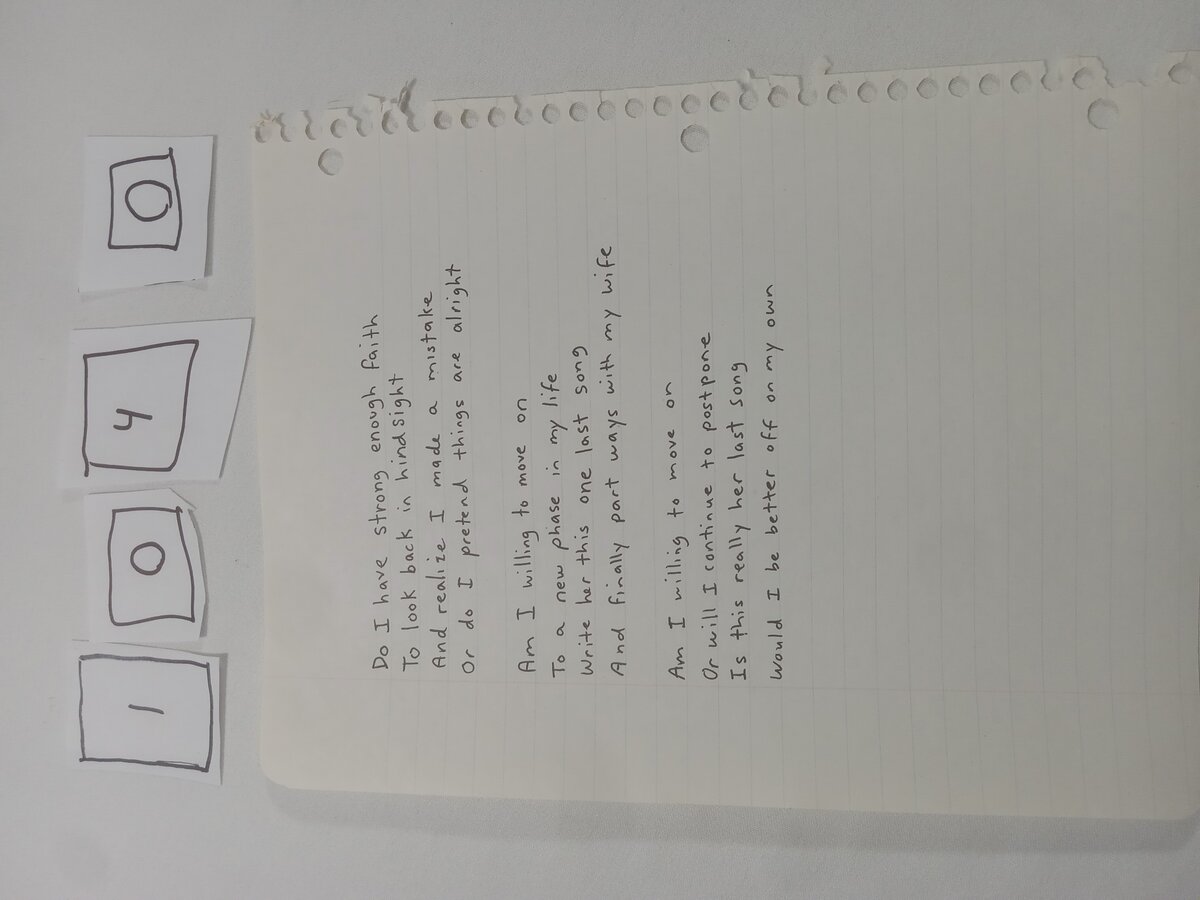 1 0 4 0
Do I have strong enough faith
To look back in hindsight
And realize I made a mistake
Or do I pretend things are alright
Am I willing to move on
To a new phase in my life
Write her this one last song
And finally part ways with my wife
Am I willing to move on
Or will I continue to postpone
Is this really her last song
Would I be better off on my own